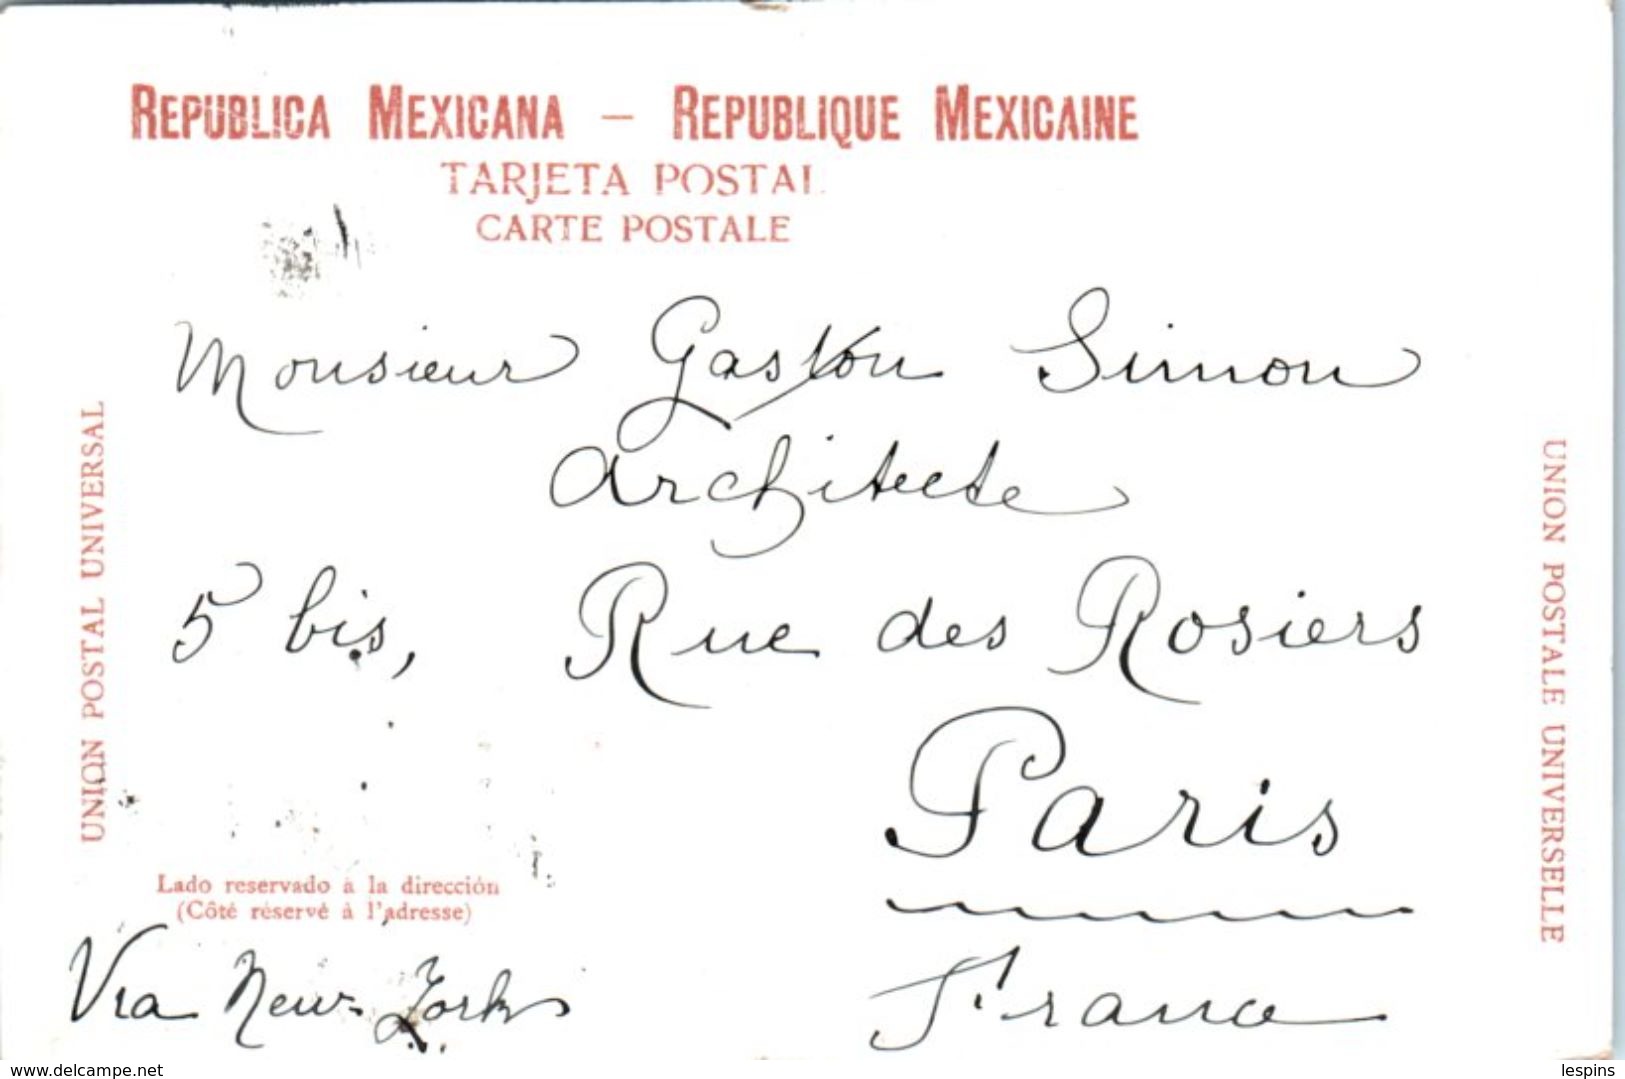 REPUBLICA MEXICANA – REPUBLIQUE MEXICAINE
TARJETA POSTAL
CARTE POSTALE
Monsieur Gaston Simon
Architecte
5 bis, Rue des Rosiers
Paris
France
UNION POSTAL UNIVERSAL
UNION POSTALE UNIVERSELLE
Lado reservado à la dirección
(Côté réservé à l'adresse)
Via New-York
www.delcampe.net
lespins